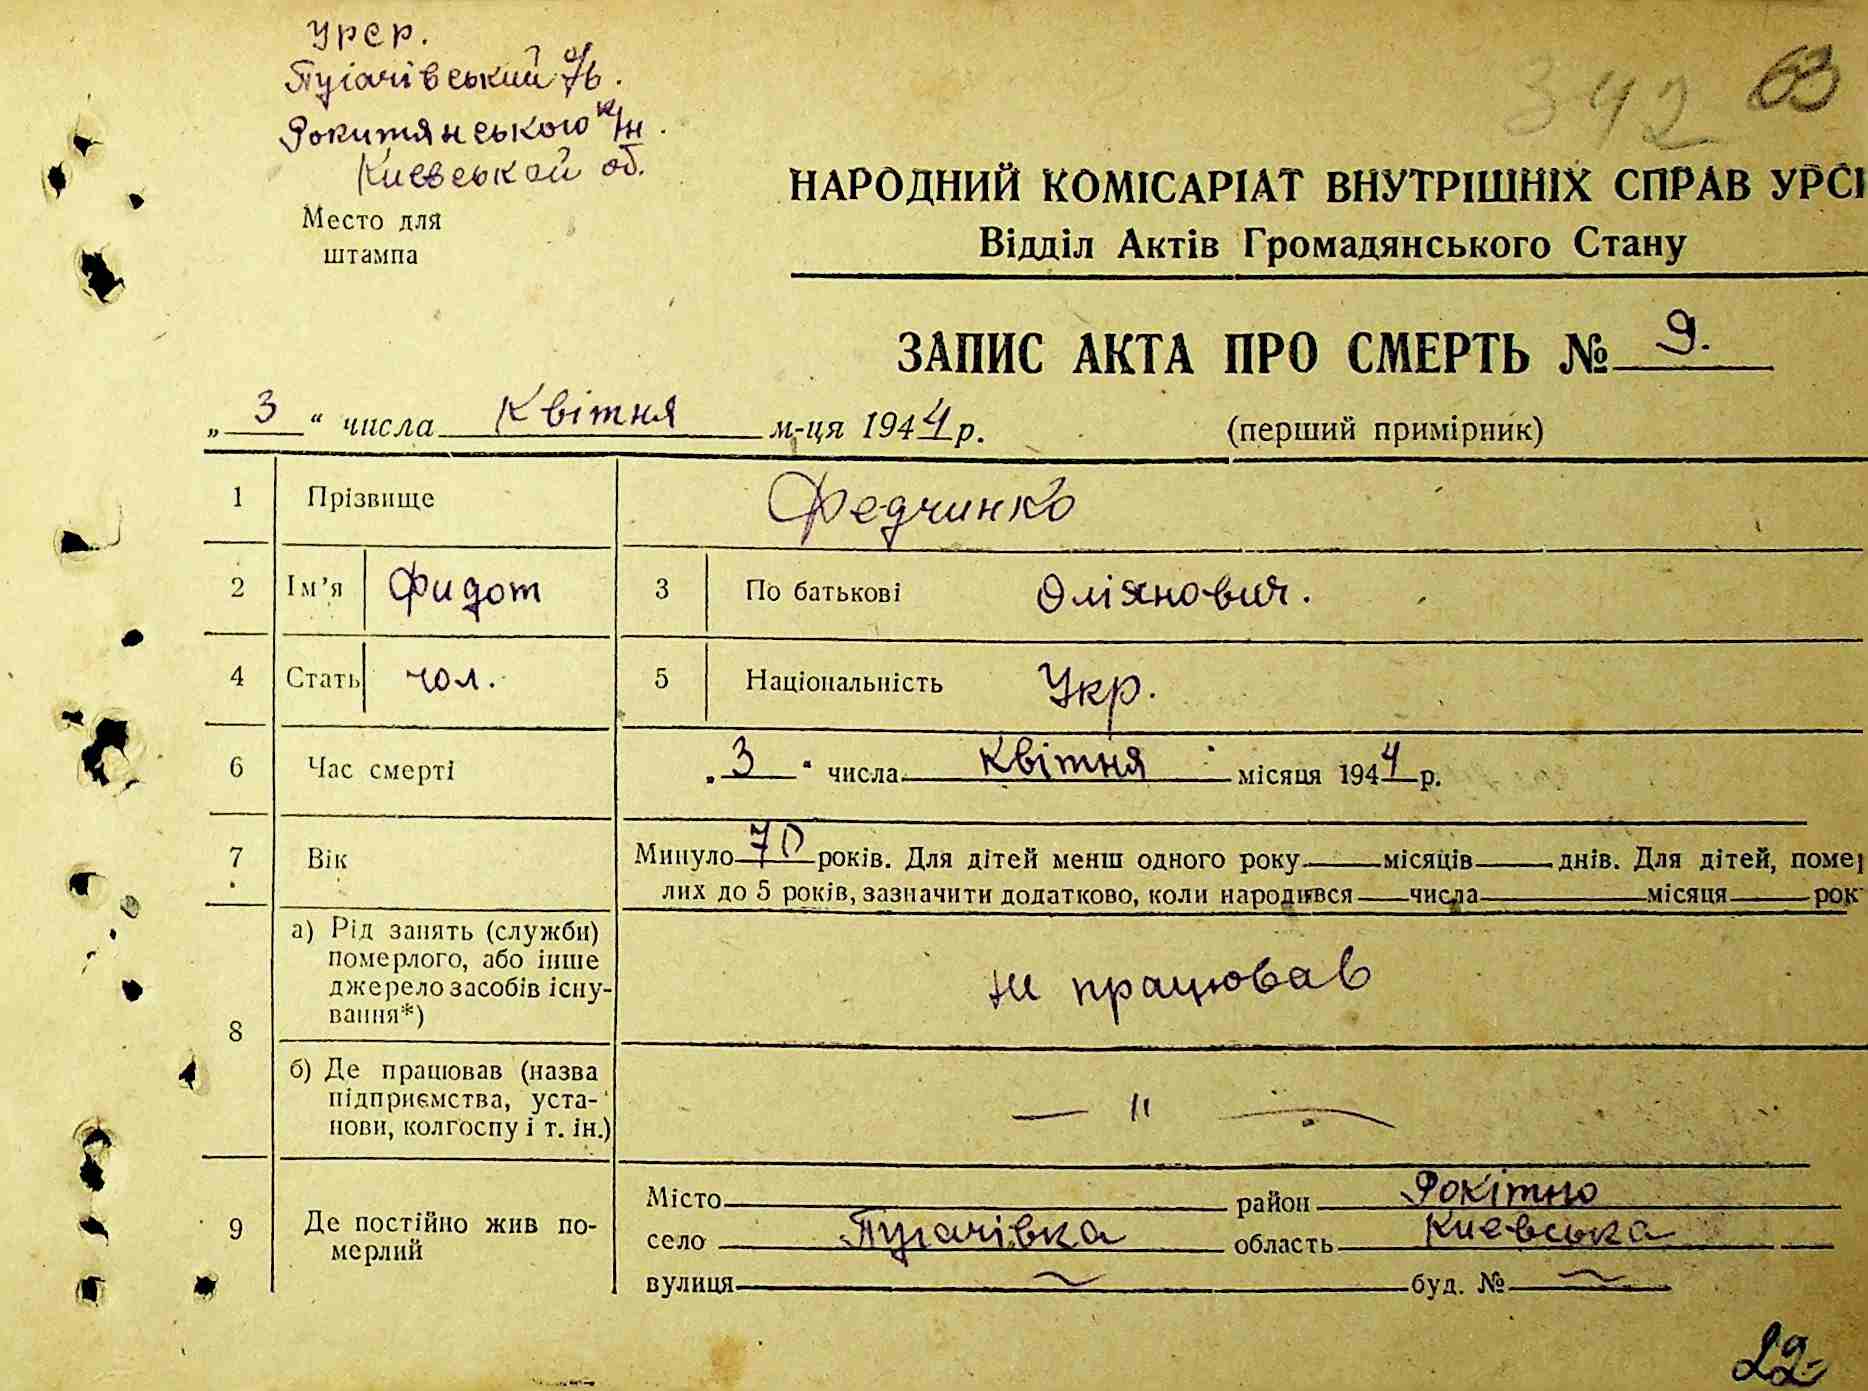 УРСР.
Пугачівський с/в.
Рокитянського р/н.
Киевськой об.
Место для
штампа
342 63
НАРОДНИЙ КОМІСАРІАТ ВНУТРІШНІХ СПРАВ УРСР
Відділ Актів Громадянського Стану
ЗАПИС АКТА ПРО СМЕРТЬ № 9.
„ 3 “ числа Квітня м-ця 1944 р. (перший примірник)
1 Прізвище Федчинко
2 Ім'я Фидот 3 По батькові Оліянович.
4 Стать чол. 5 Національність Укр.
6 Час смерті „ 3 “ числа Квітня місяця 1944 р.
7 Вік Минуло 70 років. Для дітей менш одного року місяців днів. Для дітей, помер
лих до 5 років, зазначити додатково, коли народився числа місяця рок
8 а) Рід занять (служби)
померлого, або інше
джерело засобів існу-
вання*)
ни працював
б) Де працював (назва
підприємства, уста-
нови, колгоспу і т. ін.)
— " —
9 Де постійно жив по-
мерлий
Місто район Рокітно
село Пугачівка область Киевська
вулиця ~ буд. № ~
22